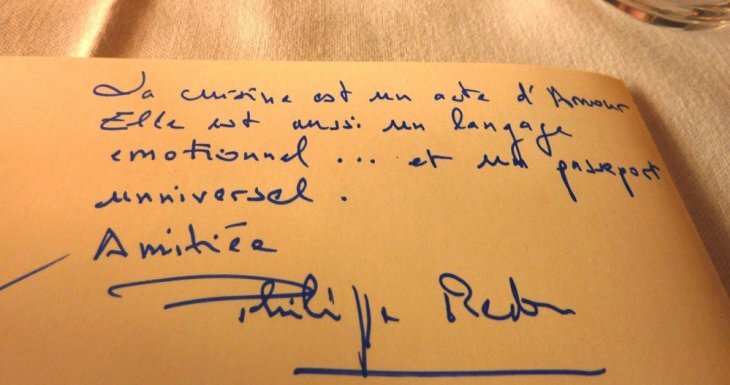 La cuisine est un acte d'Amour
Elle est aussi un langage
emotionnel ... et un passeport
unniversel.
Amitiée
Philippe Redon